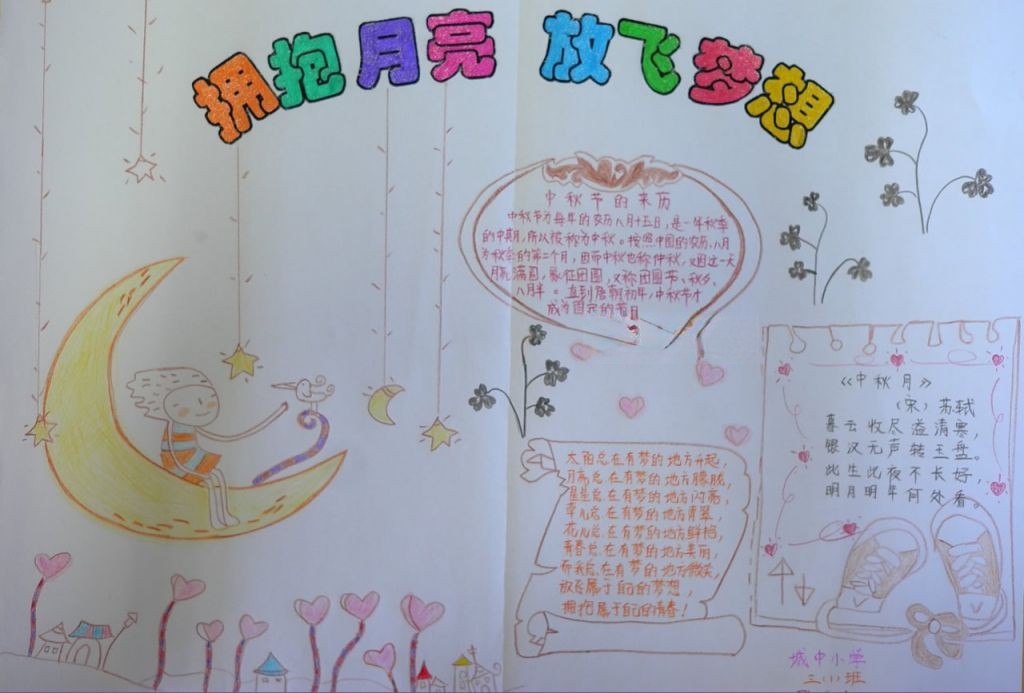 拥抱月亮 放飞梦想
中秋节的来历
中秋节为每年的农历八月十五日,是一年秋季
的中期,所以被称为中秋。按照中国的农历,八月
为秋季的第二个月,因而中秋也称仲秋,又因这一天
月亮满圆,象征团圆,又称团圆节、秋夕、
八月半。直到唐朝初年,中秋节才
成为固定的节日
太阳总在有梦的地方升起,
月亮总在有梦的地方朦胧,
星星总在有梦的地方闪亮,
草儿总在有梦的地方青翠,
花儿总在有梦的地方鲜艳,
青春总在有梦的地方美丽,
而我总在有梦的地方微笑,
放飞属于自己的梦想,
拥抱属于自己的青春!
《中秋月》
(宋)苏轼
暮云收尽溢清寒,
银汉无声转玉盘。
此生此夜不长好,
明月明年何处看。
城中小学
三(1)班